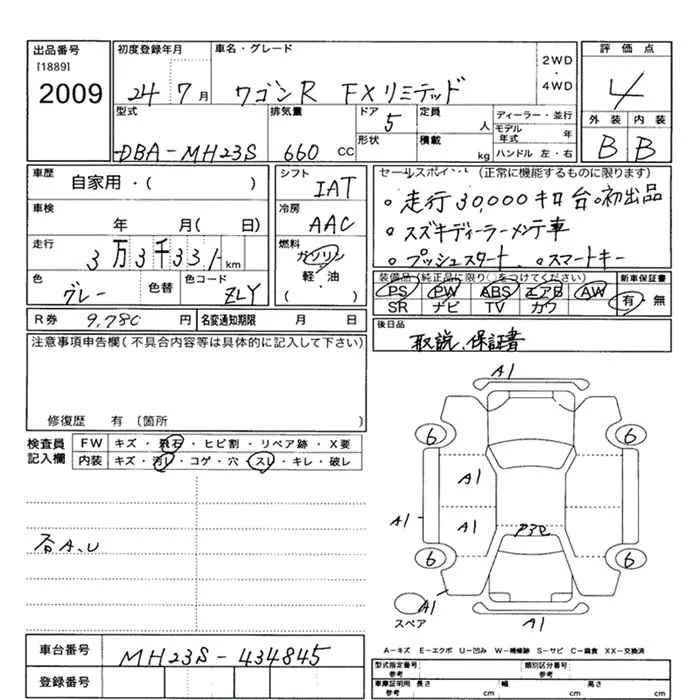 出品番号
[1889]
2009
初度登録年月
24 7月
車名・グレード
ワゴンR FXリミテッド
2WD
・
4WD
評価点
4
外装 内装
B B
型式
DBA-MH23S
排気量
660 CC
ドア
5
形状
定員
人
積載
kg
ディーラー・並行
モデル年式 年
ハンドル 左・右
車歴
自家用・( )
車検
年 月( 日)
走行
3万3千331km
色
グレー
色替
色コード
ZLY
シフト
IAT
冷房
AAC
燃料
ガソリン
軽・油
( )
セールスポイント (正常に機能するものに限ります)
。走行30,000キロ台。初出品
。スズキディーラーメンテ車
。プッシュスタート 。スマートキー
装備品(純正品に限り○をつけてください)
PS PW ABS エアB AW
SR ナビ TV カワ
新車保証書
有・無
後日品
取説、保証書
R券 9,780 円
名変通知期限 月 日
注意事項申告欄(不具合内容等は具体的に記入して下さい)
修復歴 有 (箇所
検査員記入欄
FW キズ・飛石・ヒビ割・リペア跡・X要
内装 キズ・汚レ・コゲ・穴・スレ・キレ・破レ
各A、U
A1
6 6
A1
A1 A1
P3E
6 6
A1
スペア
A1
車台番号
MH23S-434845
登録番号
A-キズ E-エクボ U-凹み W-補修跡 S-サビ C-腐食 XX-交換済
型式指定番号
参考
類別区分番号
参考
車庫証明用
参考
長さ cm
幅 cm
高さ cm